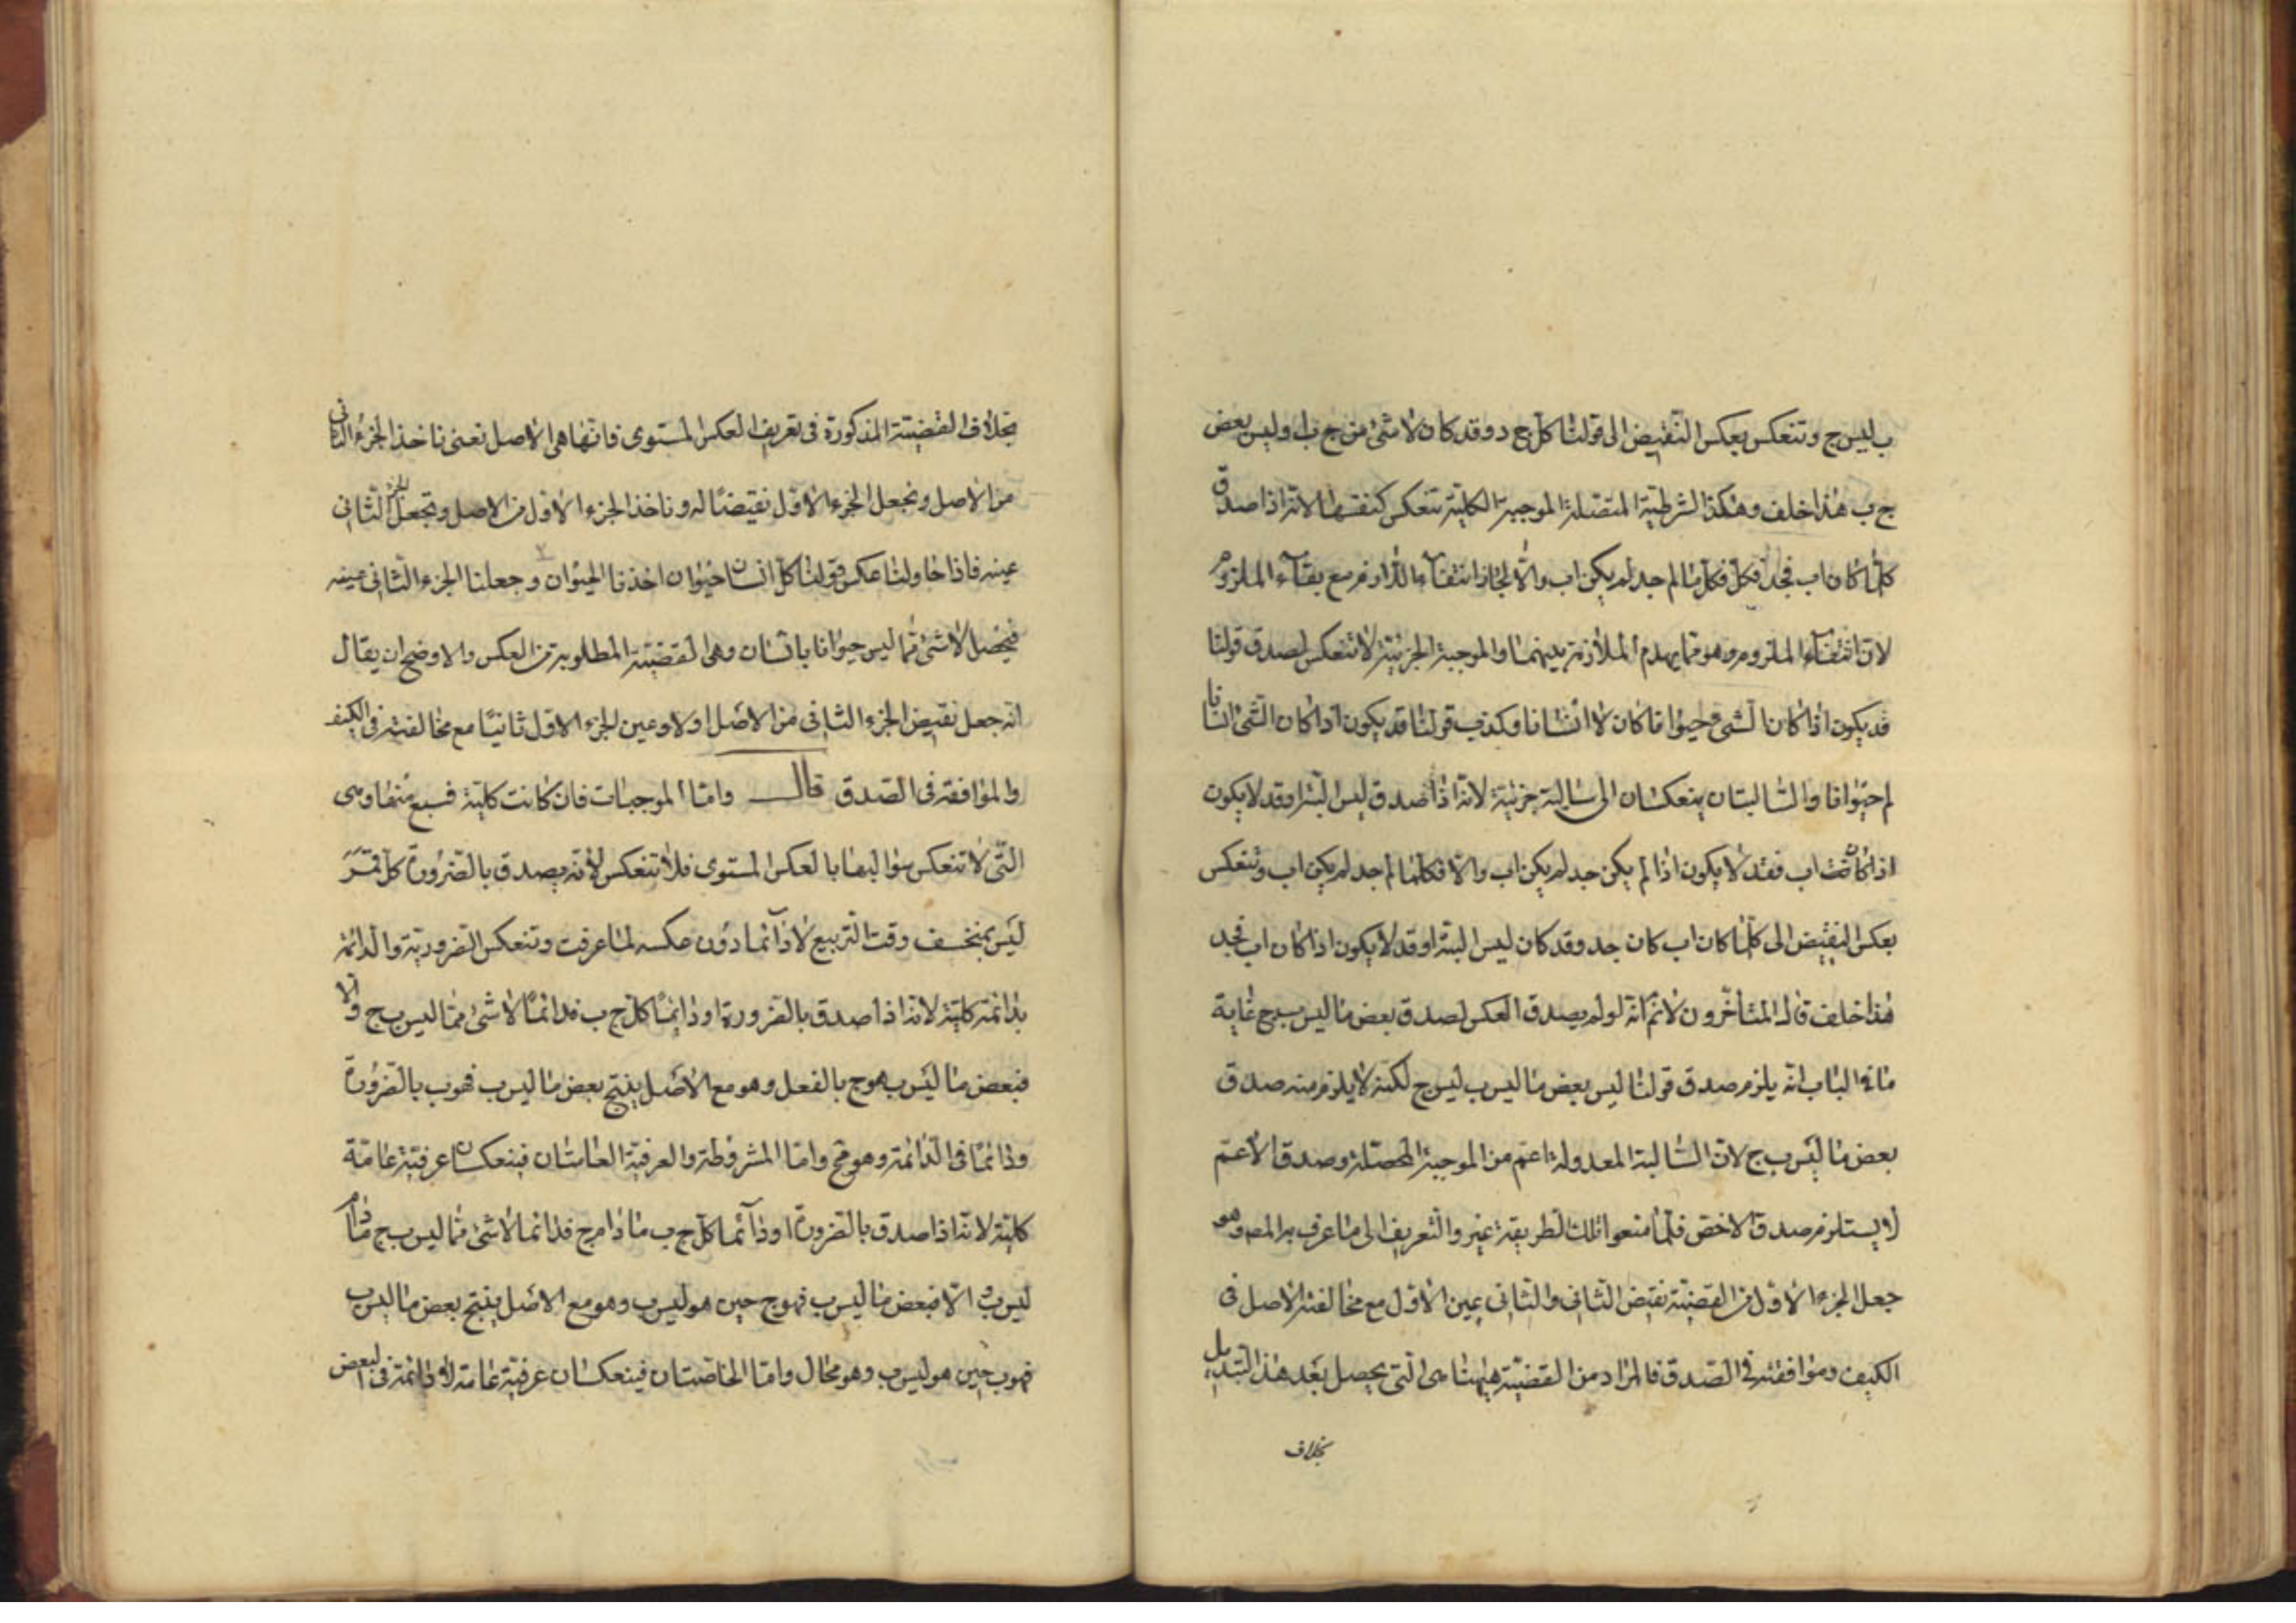 ب ليس ج وتنعكس بعكس النقيض الى قولنا كل ج د وقد كان لا شئ من ج ب او ليس بعض
ج ب هذا خلف وهكذا الشرطية المتصلة الموجبة الكلية تنعكس كنفسها لانه اذا صدق
كلما كان اب فجد فكلما لم جد لم يكن اب والا لجاز انتفاء اللازم مع بقاء الملزوم
لان انتفاء الملزوم وهو مما يهدم الملازمة بينهما والموجبة الجزئية لا تنعكس لصدق قولنا
قد يكون اذا كان الشئ حيوانا كان لا انسانا وكذب قولنا قد يكون اذا كان الشئ انسانا
لم حيوانا والسالبتان ينعكسان الى سالبة جزئية لانه اذا صدق ليس البتة او قد لا يكون
اذا كانت اب فقد لا يكون اذا لم يكن جد لم يكن اب والا فكلما لم جد لم يكن اب وتنعكس
بعكس النقيض الى كلما كان اب كان جد وقد كان ليس البتة او قد لا يكون اذا كان اب فجد
هذا خلف قال المتأخرون لا نم انه لو لم يصدق العكس لصدق بعض ما ليس ب ج غاية
ما فى الباب انه يلزم صدق قولنا ليس بعض ما ليس ب ليس ج لكنه لا يلزم منه صدق
بعض ما ليس ب ج لان السالبة المعدولة اعم من الموجبة المحصلة وصدق الاعم
لا يستلزم صدق الاخص فلما منعوا تلك الطريقة غيروا التعريف الى ما عرف به المصـ وهو
جعل الجزء الاول من القضية نقيض الثانى والثانى عين الاول مع مخالفة الاصل فى
الكيف وموافقته فى الصدق فالمراد من القضية هيهنا هى التى يحصل بعد هذا التبديل
بخلاف
بخلاف القضية المذكورة فى تعريف العكس المستوى فانها هى الاصل نعنى ناخذ الجزء الثانى
من الاصل ونجعل الجزء الاول نقيضا له وناخذ الجزء الاول من الاصل ونجعل الجزء الثانى
عينه فاذا حاولنا عكس قولنا كل انسان حيوان اخذنا الحيوان وجعلنا الجزء الثانى عينه
فيحصل لا شئ مما ليس حيوانا بانسان وهى القضية المطلوبة من العكس والاوضح ان يقال
انه جعل نقيض الجزء الثانى من الاصل اولا وعين الجزء الاول ثانيا مع مخالفته فى الكيف
والموافقة فى الصدق قال واما الموجبات فان كانت كلية فسبع منها وهى
التى لا تنعكس سوالبها بالعكس المستوى فلا تنعكس لانه يصدق بالضرورة كل قمر
ليس بمنخسف وقت التربيع لا دائما دون عكسه لما عرفت وتنعكس الضرورية والدائمة
دائمة كلية لانه اذا صدق بالضرورة او دائما كل ج ب فدائما لا شئ مما ليس ب ج والا
فبعض ما ليس ب هو ج بالفعل وهو مع الاصل ينتج بعض ما ليس ب فهو ب بالضرورة
ودائما فى الدائمة وهو مح واما المشروطة والعرفية العامتان فينعكسان عرفية عامة
كلية لانه اذا صدق بالضرورة او دائما كل ج ب ما دام ج فدائما لا شئ مما ليس ب ج ما دام
ليس ب والا فبعض ما ليس ب فهو ج حين هو ليس ب وهو مع الاصل ينتج بعض ما ليس ب
فهو ب حين هو ليس ب وهو محال واما الخاصتان فينعكسان عرفية عامة لا دائمة فى البعض